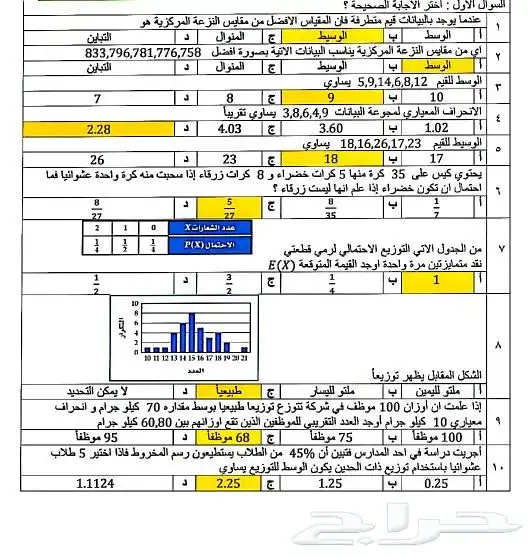 السؤال الاول : أختر الاجابة الصحيحة ؟
١ عندما يوجد بالبيانات قيم متطرفة فان المقياس الافضل من مقايس النزعة المركزية هو
أ الوسط ب الوسيط ج المنوال د التباين
٢ اي من مقايس النزعة المركزية يناسب البيانات الاتية بصورة افضل 833,796,781,776,758
أ الوسط ب الوسيط ج المنوال د التباين
٣ الوسط للقيم 5,9,14,6,8,12 يساوي
أ 10 ب 9 ج 8 د 7
٤ الانحراف المعياري لمجوعة البيانات 3,8,6,4,9 يساوي تقريباً
أ 1.02 ب 3.60 ج 4.03 د 2.28
٥ الوسيط للقيم 18,16,26,17,23 يساوي
أ 17 ب 18 ج 23 د 26
٦ يحتوي كيس على 35 كرة منها 5 كرات خضراء و 8 كرات زرقاء إذا سحبت منه كرة واحدة عشوائيا فما
احتمال ان تكون خضراء إذا علم انها ليست زرقاء ؟
أ 1/7 ب 8/35 ج 5/27 د 8/27
عدد الشعارات X 0 1 2
الاحتمال P(X) 1/4 1/2 1/4
٧ من الجدول الاتي التوزيع الاحتمالي لرمي قطعتي
نقد متمايزتين مرة واحدة أوجد القيمة المتوقعة E(X)
أ 1 ب 1/4 ج 3/2 د 1/2
10
8
6
4
2
0
التكرار
10 11 12 13 14 15 16 17 18 19 20 21
العدد
٨ الشكل المقابل يظهر توزيعاً
أ ملتو لليمين ب ملتو لليسار ج طبيعياً د لا يمكن التحديد
٩ إذا علمت ان أوزان 100 موظف في شركة تتوزع توزيعا طبيعيا بوسط مقداره 70 كيلو جرام و انحراف
معياري 10 كيلو جرام أوجد العدد التقريبي للموظفين الذين تقع اوزانهم بين 60,80 كيلو جرام
أ 100 موظف ب 75 موظفاً ج 68 موظفاً د 95 موظفاً
١٠ أجريت دراسة في احد المدارس فتبين أن 45% من الطلاب يستطيعون رسم المخروط فاذا اختير 5 طلاب
عشوانيا باستخدام توزيع ذات الحدين يكون الوسط للتوزيع يساوي
أ 0.25 ب 1.25 ج 2.25 د 1.1124
حراج